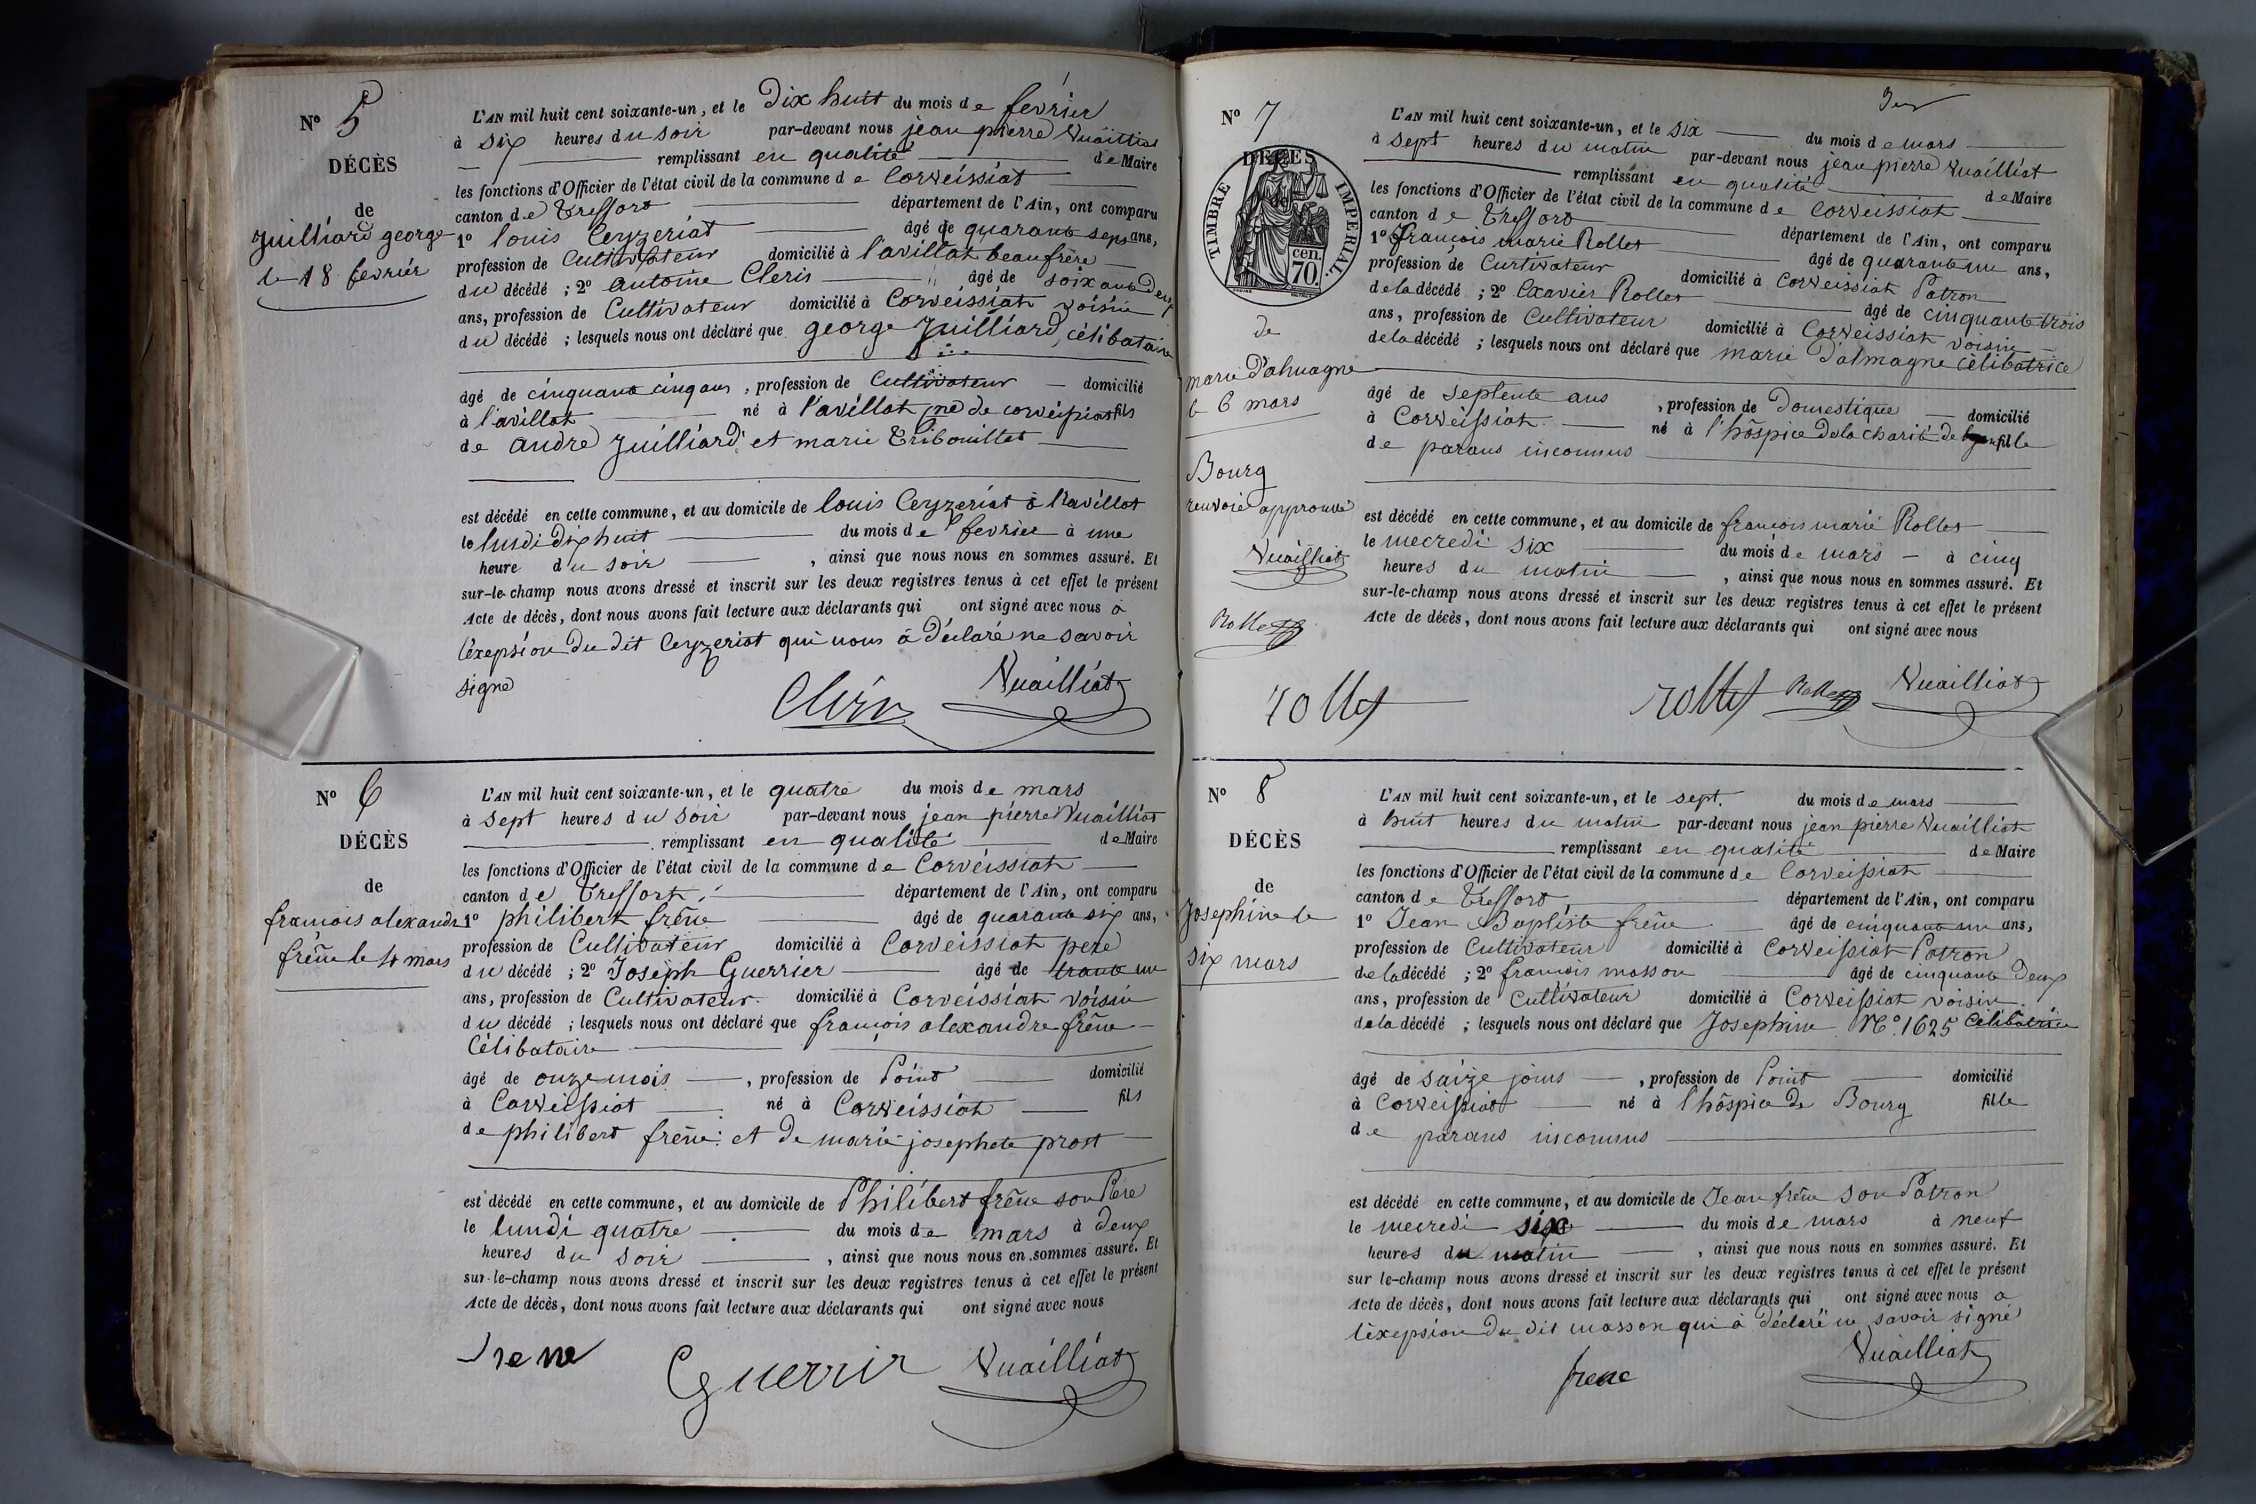 N° 5
DÉCÈS
de
Juilliard george
le 18 fevrier
L'AN mil huit cent soixante-un, et le Dix huit du mois de fevrier
à six heures du soir par-devant nous jean pierre Vuailliat
remplissant en qualité de Maire
les fonctions d'Officier de l'état civil de la commune de Corveissiat
canton de Treffort département de l'Ain, ont comparu
1° louis Ceyzeriat âgé de quarante sept ans,
profession de Cultivateur domicilié à l'avillat beaufrère
du décédé ; 2° antoine Cleris âgé de soixante Deux
ans, profession de Cultivateur domicilié à Corveissiat voisin
du décédé ; lesquels nous ont déclaré que george Juilliard, célibataire
âgé de cinquante cinq ans, profession de Cultivateur domicilié
à l'avillat né à l'avillat, né de corveissiat fils
de andré Juilliard et marie Tribouillet
est décédé en cette commune, et au domicile de louis Ceyzeriat à l'avillat
le lundi dix huit du mois de fevrier à une
heure du soir, ainsi que nous nous en sommes assuré. Et
sur-le-champ nous avons dressé et inscrit sur les deux registres tenus à cet effet le présent
Acte de décès, dont nous avons fait lecture aux déclarants qui ont signé avec nous à
l'éxepsion du dit Ceyzeriat qui nous à déclaré ne savoir
signé
Vuailliat
N° 6
DÉCÈS
de
francois alexandre
frêne le 4 mars
L'AN mil huit cent soixante-un, et le quatre du mois de mars
à sept heures du soir par-devant nous jean pierre Vuailliat
remplissant en qualité de Maire
les fonctions d'Officier de l'état civil de la commune de Corveissiat
canton de Treffort département de l'Ain, ont comparu
1° philibert frêne âgé de quarante six ans,
profession de Cultivateur domicilié à Corveissiat pere
du décédé ; 2° Joseph Guerrier âgé de trante un
ans, profession de Cultivateur domicilié à Corveissiat voisin
du décédé ; lesquels nous ont déclaré que françois alexandre frêne
Célibataire
âgé de onze mois, profession de Point domicilié
à Corveissiat né à Corveissiat fils
de philibert frêne et de marie josephete prost
est décédé en cette commune, et au domicile de Philibert frêne son Père
le lundi quatre du mois de mars à deux
heures du soir, ainsi que nous nous en sommes assuré. Et
sur-le-champ nous avons dressé et inscrit sur les deux registres tenus à cet effet le présent
Acte de décès, dont nous avons fait lecture aux déclarants qui ont signé avec nous
frene Guerrir Vuailliat
N° 7
DÉCÈS
TIMBRE IMPERIAL.
cen.
70.
de
marie D'almagne
le 6 mars
Bourg
renvoie approuvé
Vuailliat
Rollet
L'AN mil huit cent soixante-un, et le six du mois de mars
à sept heures du matin par-devant nous jean pierre Vuailliat
remplissant en qualité de Maire
les fonctions d'Officier de l'état civil de la commune de Corveissiat
canton de Treffort département de l'Ain, ont comparu
1° françois marie Rollet âgé de quarante un ans,
profession de Curtivateur domicilié à Corveissiat Patron
de la décédé ; 2° Exavier Rollet âgé de cinquante trois
ans, profession de Cultivateur domicilié à Corveissiat voisin
de la décédé ; lesquels nous ont déclaré que marie D'almagne célibatrice
âgé de septente ans, profession de Domestique domicilié
à Corveissiat né à l'hôspice de la charité de fille
de parans inconnus
est décédé en cette commune, et au domicile de francois marie Rollet
le mecredi six du mois de mars à cinq
heures du matin, ainsi que nous nous en sommes assuré. Et
sur-le-champ nous avons dressé et inscrit sur les deux registres tenus à cet effet le présent
Acte de décès, dont nous avons fait lecture aux déclarants qui ont signé avec nous
rollet rollet Rollet Vuailliat
N° 8
DÉCÈS
de
Josephine le
six mars
L'AN mil huit cent soixante-un, et le sept du mois de mars
à huit heures du matin par-devant nous jean pierre Vuailliat
remplissant en qualité de Maire
les fonctions d'Officier de l'état civil de la commune de Corveissiat
canton de Treffort département de l'Ain, ont comparu
1° Jean Baptiste frêne âgé de cinquante un ans,
profession de Cultivateur domicilié à Corveissiat Patron
de la décédé ; 2° francois masson âgé de cinquante Deux
ans, profession de Cultivateur domicilié à Corveissiat voisin
de la décédé ; lesquels nous ont déclaré que Josephine N° 1625 Célibatrice
âgé de saize jours, profession de Point domicilié
à Corveissiat né à l'hôspice de Bourg fille
de parans inconnus
est décédé en cette commune, et au domicile de Jean frêne son Patron
le mecredi six du mois de mars à neuf
heures du matin, ainsi que nous nous en sommes assuré. Et
sur le-champ nous avons dressé et inscrit sur les deux registres tenus à cet effet le présent
Acte de décès, dont nous avons fait lecture aux déclarants qui ont signé avec nous a
l'éxepsion du dit masson qui à déclaré ne savoir signé
frene Vuailliat